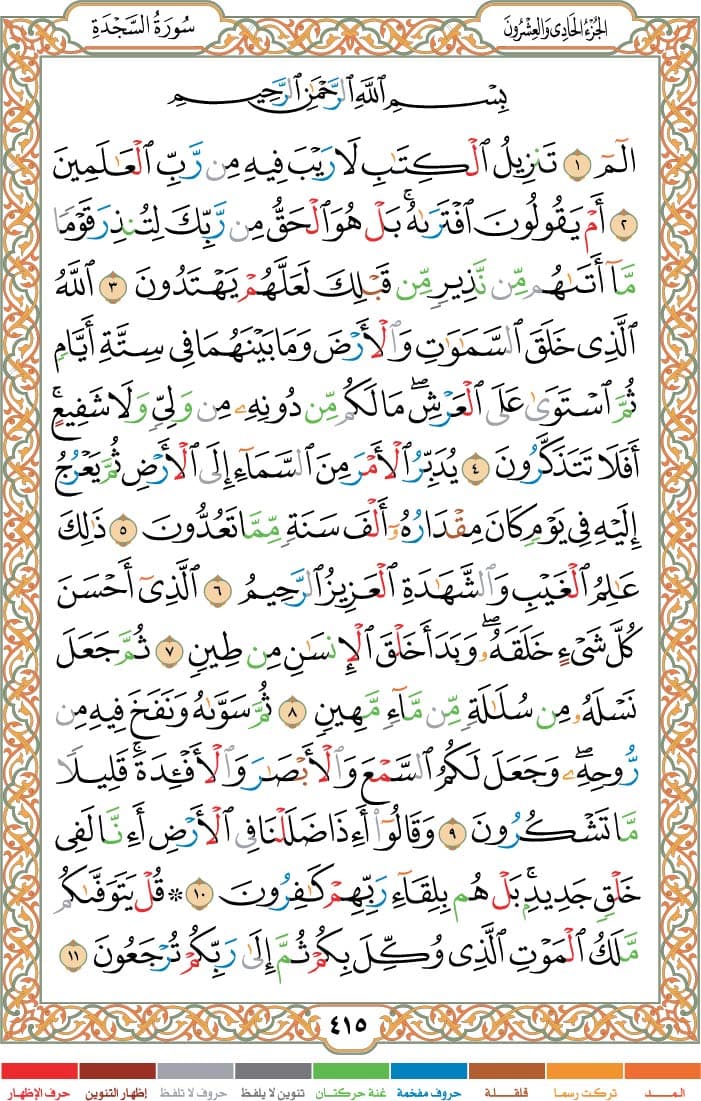 الجُزْءُ الحَادِى وَالعِشْرُونَ
سُورَةُ السَّجْدَةِ
بِسْمِ ٱللَّهِ ٱلرَّحْمَٰنِ ٱلرَّحِيمِ
الٓمٓ ١ تَنزِيلُ ٱلْكِتَٰبِ لَا رَيْبَ فِيهِ مِن رَّبِّ ٱلْعَٰلَمِينَ
٢ أَمْ يَقُولُونَ ٱفْتَرَىٰهُ ۚ بَلْ هُوَ ٱلْحَقُّ مِن رَّبِّكَ لِتُنذِرَ قَوْمًا
مَّآ أَتَىٰهُم مِّن نَّذِيرٍ مِّن قَبْلِكَ لَعَلَّهُمْ يَهْتَدُونَ ٣ ٱللَّهُ
ٱلَّذِى خَلَقَ ٱلسَّمَٰوَٰتِ وَٱلْأَرْضَ وَمَا بَيْنَهُمَا فِى سِتَّةِ أَيَّامٍ
ثُمَّ ٱسْتَوَىٰ عَلَى ٱلْعَرْشِ ۖ مَا لَكُم مِّن دُونِهِۦ مِن وَلِىٍّ وَلَا شَفِيعٍ ۚ
أَفَلَا تَتَذَكَّرُونَ ٤ يُدَبِّرُ ٱلْأَمْرَ مِنَ ٱلسَّمَآءِ إِلَى ٱلْأَرْضِ ثُمَّ يَعْرُجُ
إِلَيْهِ فِى يَوْمٍ كَانَ مِقْدَارُهُۥٓ أَلْفَ سَنَةٍ مِّمَّا تَعُدُّونَ ٥ ذَٰلِكَ
عَٰلِمُ ٱلْغَيْبِ وَٱلشَّهَٰدَةِ ٱلْعَزِيزُ ٱلرَّحِيمُ ٦ ٱلَّذِىٓ أَحْسَنَ
كُلَّ شَىْءٍ خَلَقَهُۥ ۖ وَبَدَأَ خَلْقَ ٱلْإِنسَٰنِ مِن طِينٍ ٧ ثُمَّ جَعَلَ
نَسْلَهُۥ مِن سُلَٰلَةٍ مِّن مَّآءٍ مَّهِينٍ ٨ ثُمَّ سَوَّىٰهُ وَنَفَخَ فِيهِ مِن
رُّوحِهِۦ ۖ وَجَعَلَ لَكُمُ ٱلسَّمْعَ وَٱلْأَبْصَٰرَ وَٱلْأَفْـِٔدَةَ ۚ قَلِيلًا
مَّا تَشْكُرُونَ ٩ وَقَالُوٓا۟ أَءِذَا ضَلَلْنَا فِى ٱلْأَرْضِ أَءِنَّا لَفِى
خَلْقٍ جَدِيدٍۭ ۚ بَلْ هُم بِلِقَآءِ رَبِّهِمْ كَٰفِرُونَ ١٠ ۞ قُلْ يَتَوَفَّىٰكُم
مَّلَكُ ٱلْمَوْتِ ٱلَّذِى وُكِّلَ بِكُمْ ثُمَّ إِلَىٰ رَبِّكُمْ تُرْجَعُونَ ١١
٤١٥
المـــد تركت رسما قلقـــلة حروف مفخمة غنة حركتـان تنوين لا يلفظ حروف لا تلفظ إظهار التنوين حرف الإظهار